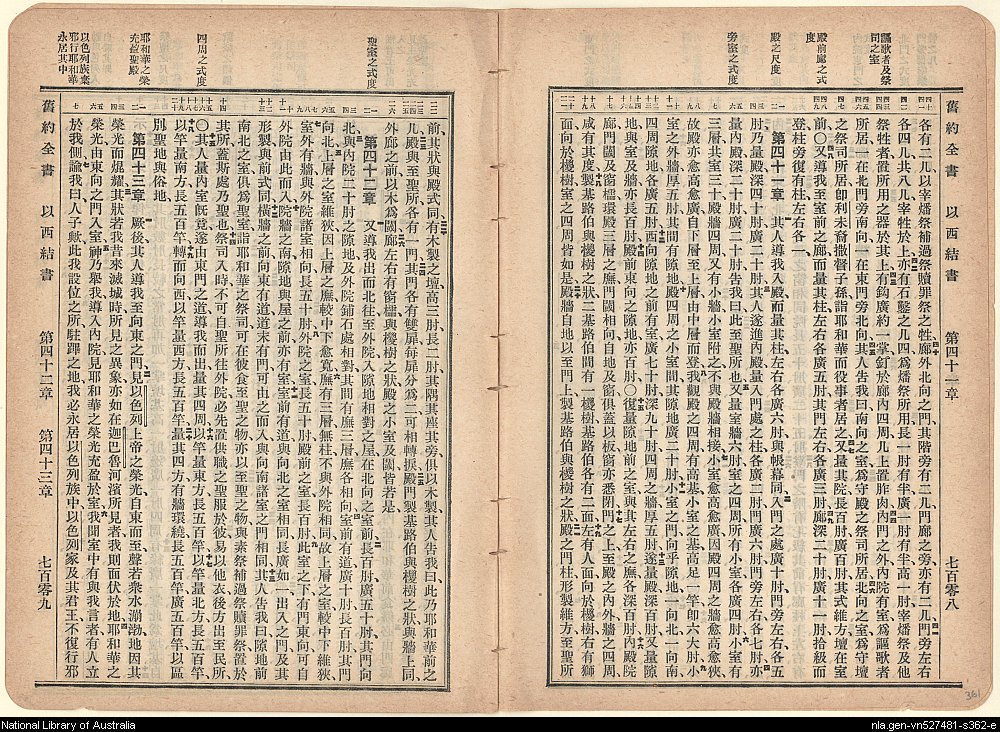 謳歌者及祭
司之室
殿前廊之式
度
殿之尺度
旁室之式度
舊約全書　以西結書　第四十一章　七百零八
各有二几以宰燔祭補過祭贖罪祭之牲廊外北向之門其階旁有二几門廊之旁亦有二几門旁左右
各四几共八几宰牲於上亦有石鑿之几四爲燔祭所用長一肘有半廣一肘有半高一肘宰燔祭及他
祭牲者置所用之器於其上有鈎廣約一掌釘於廊內四周几上置胙肉內門之外內院有室爲謳歌者
所居一在北門旁南向一在東門旁北向其人告我曰南向之室爲守殿之祭司所居北向之室爲守壇
之祭司所居卽利未裔撒督子孫詣耶和華前而役事者居之又量其院長百肘廣百肘其式維方壇在室
前〇又導我至室前之廊而量其柱左右各廣五肘其門左右各廣三肘廊深二十肘廣十一肘拾級而
登柱旁復有柱左右各一
第四十一章　其人導我入殿而量其柱左右各廣六肘與帳幕同入門之處廣十肘門旁左右各五
肘乃量殿深四十肘廣二十肘其人遂進內殿量入門處之柱各廣二肘門廣六肘門旁左右各七肘亦
量內殿深二十肘廣二十肘告我曰此至聖所也又量室牆六肘室之四周所有小室各廣四肘小室有
三層共室三十殿牆四周又有小牆小室附之不與殿牆相接小室愈高愈廣因殿四周小室愈高愈狹
故殿亦愈高愈廣自下層至上層由中層而登我觀殿之四周有高基小室之基高足一竿卽六大肘小
室之外牆厚五肘其間有隙地殿四周之小室間其隙地廣二十肘小室之門向乎隙地一向北一向南
四周隙地各廣五肘西向隙地之前有室廣七十肘深九十肘四周之牆厚五肘遂量殿深百肘又量隙
地與室及牆亦長百肘殿前東向之隙地亦百肘〇復量隙地前之室與其左右之廡各深百肘內殿院
廊門閾及窗櫺環殿三層之廡門閾相向自地及窗俱蓋以板窗亦悉閉門之上至殿之內外牆上
咸有度量製基路伯與椶樹之狀二基路伯間有一椶樹基路伯各有二面左有人面向於椶樹右有獅
面向於椶樹室之四周皆如是殿牆自地以至門上製基路伯與椶樹之狀殿之門柱形製維方至聖所
聖室之式度
四周之式度
耶和華之榮
光盈聖殿
以色列族棄
邪行耶和華
永居其中
前其狀與殿式同有木製之壇高三肘長二肘其隅其座其旁俱以木製其人告我曰此乃耶和華前之
几殿與至聖所各有一門其門各有雙扉每扉分爲二可相轉捩殿門製基路伯與椶樹之狀與牆上同
外廊之前以木爲閾廊左右有窗櫺與椶樹之狀殿之小室及閾皆若是
第四十二章　又導我出而北往至外院入隙地相對之屋在北向之室前長百肘廣五十肘其門向
北與內院二十肘之隙地及外院鋪石處相對其間有廡三層廡各相向室前有道廣十肘長百肘其門
向北上層之室維狹因上層之廡較中下愈寬廡有三層無柱不與外院相同故上層之室較中下維狹
室外有牆與外院諸室相向長五十肘外院之室長五十肘殿前之室長百肘此室之下有門東向可自
外院由此而入院牆之南隙地與屋之前亦有室室前有道與向北之室相同長廣如一出入之門及其
形製與前式同橫牆之前向東有道道末有門可由之而入與向南諸室之門相同其人告我曰隙地前
南北之室俱爲聖室詣耶和華之祭司可在彼食至聖之物亦以至聖之物與素祭補過祭贖罪祭置於
其所蓋斯處乃聖也祭司入時不可自聖所往外院必先置供職之聖服於彼易以他衣後方出至民所
〇其人量內室旣竟遂由東門之道導我而出量其四周以竿量東方長五百竿以竿量北方長五百竿
以竿量南方長五百竿轉而向西以竿量西方長五百竿量其四方有牆環繞長五百竿廣五百竿以區
別聖地與俗地
第四十三章　厥後其人導我至向東之門見以色列上帝之榮光自東而至聲若衆水湧渤地因其
榮光而焜耀其狀若我昔來滅城時所見之異象亦如在迦巴魯河濱所見者我則面伏於地耶和華之
榮光由東向之門入室神乃舉我導入內院見耶和華之榮光充盈於室我聞室中有與我言者有人立
於我側諭我曰人子歟此我設位之所駐蹕之地我必永居以色列族中以色列家及其君王不復行邪
舊約全書　以西結書　第四十二章　第四十三章　七百零九
361
National Library of Australia
nla.gen-vn527481-s362-e